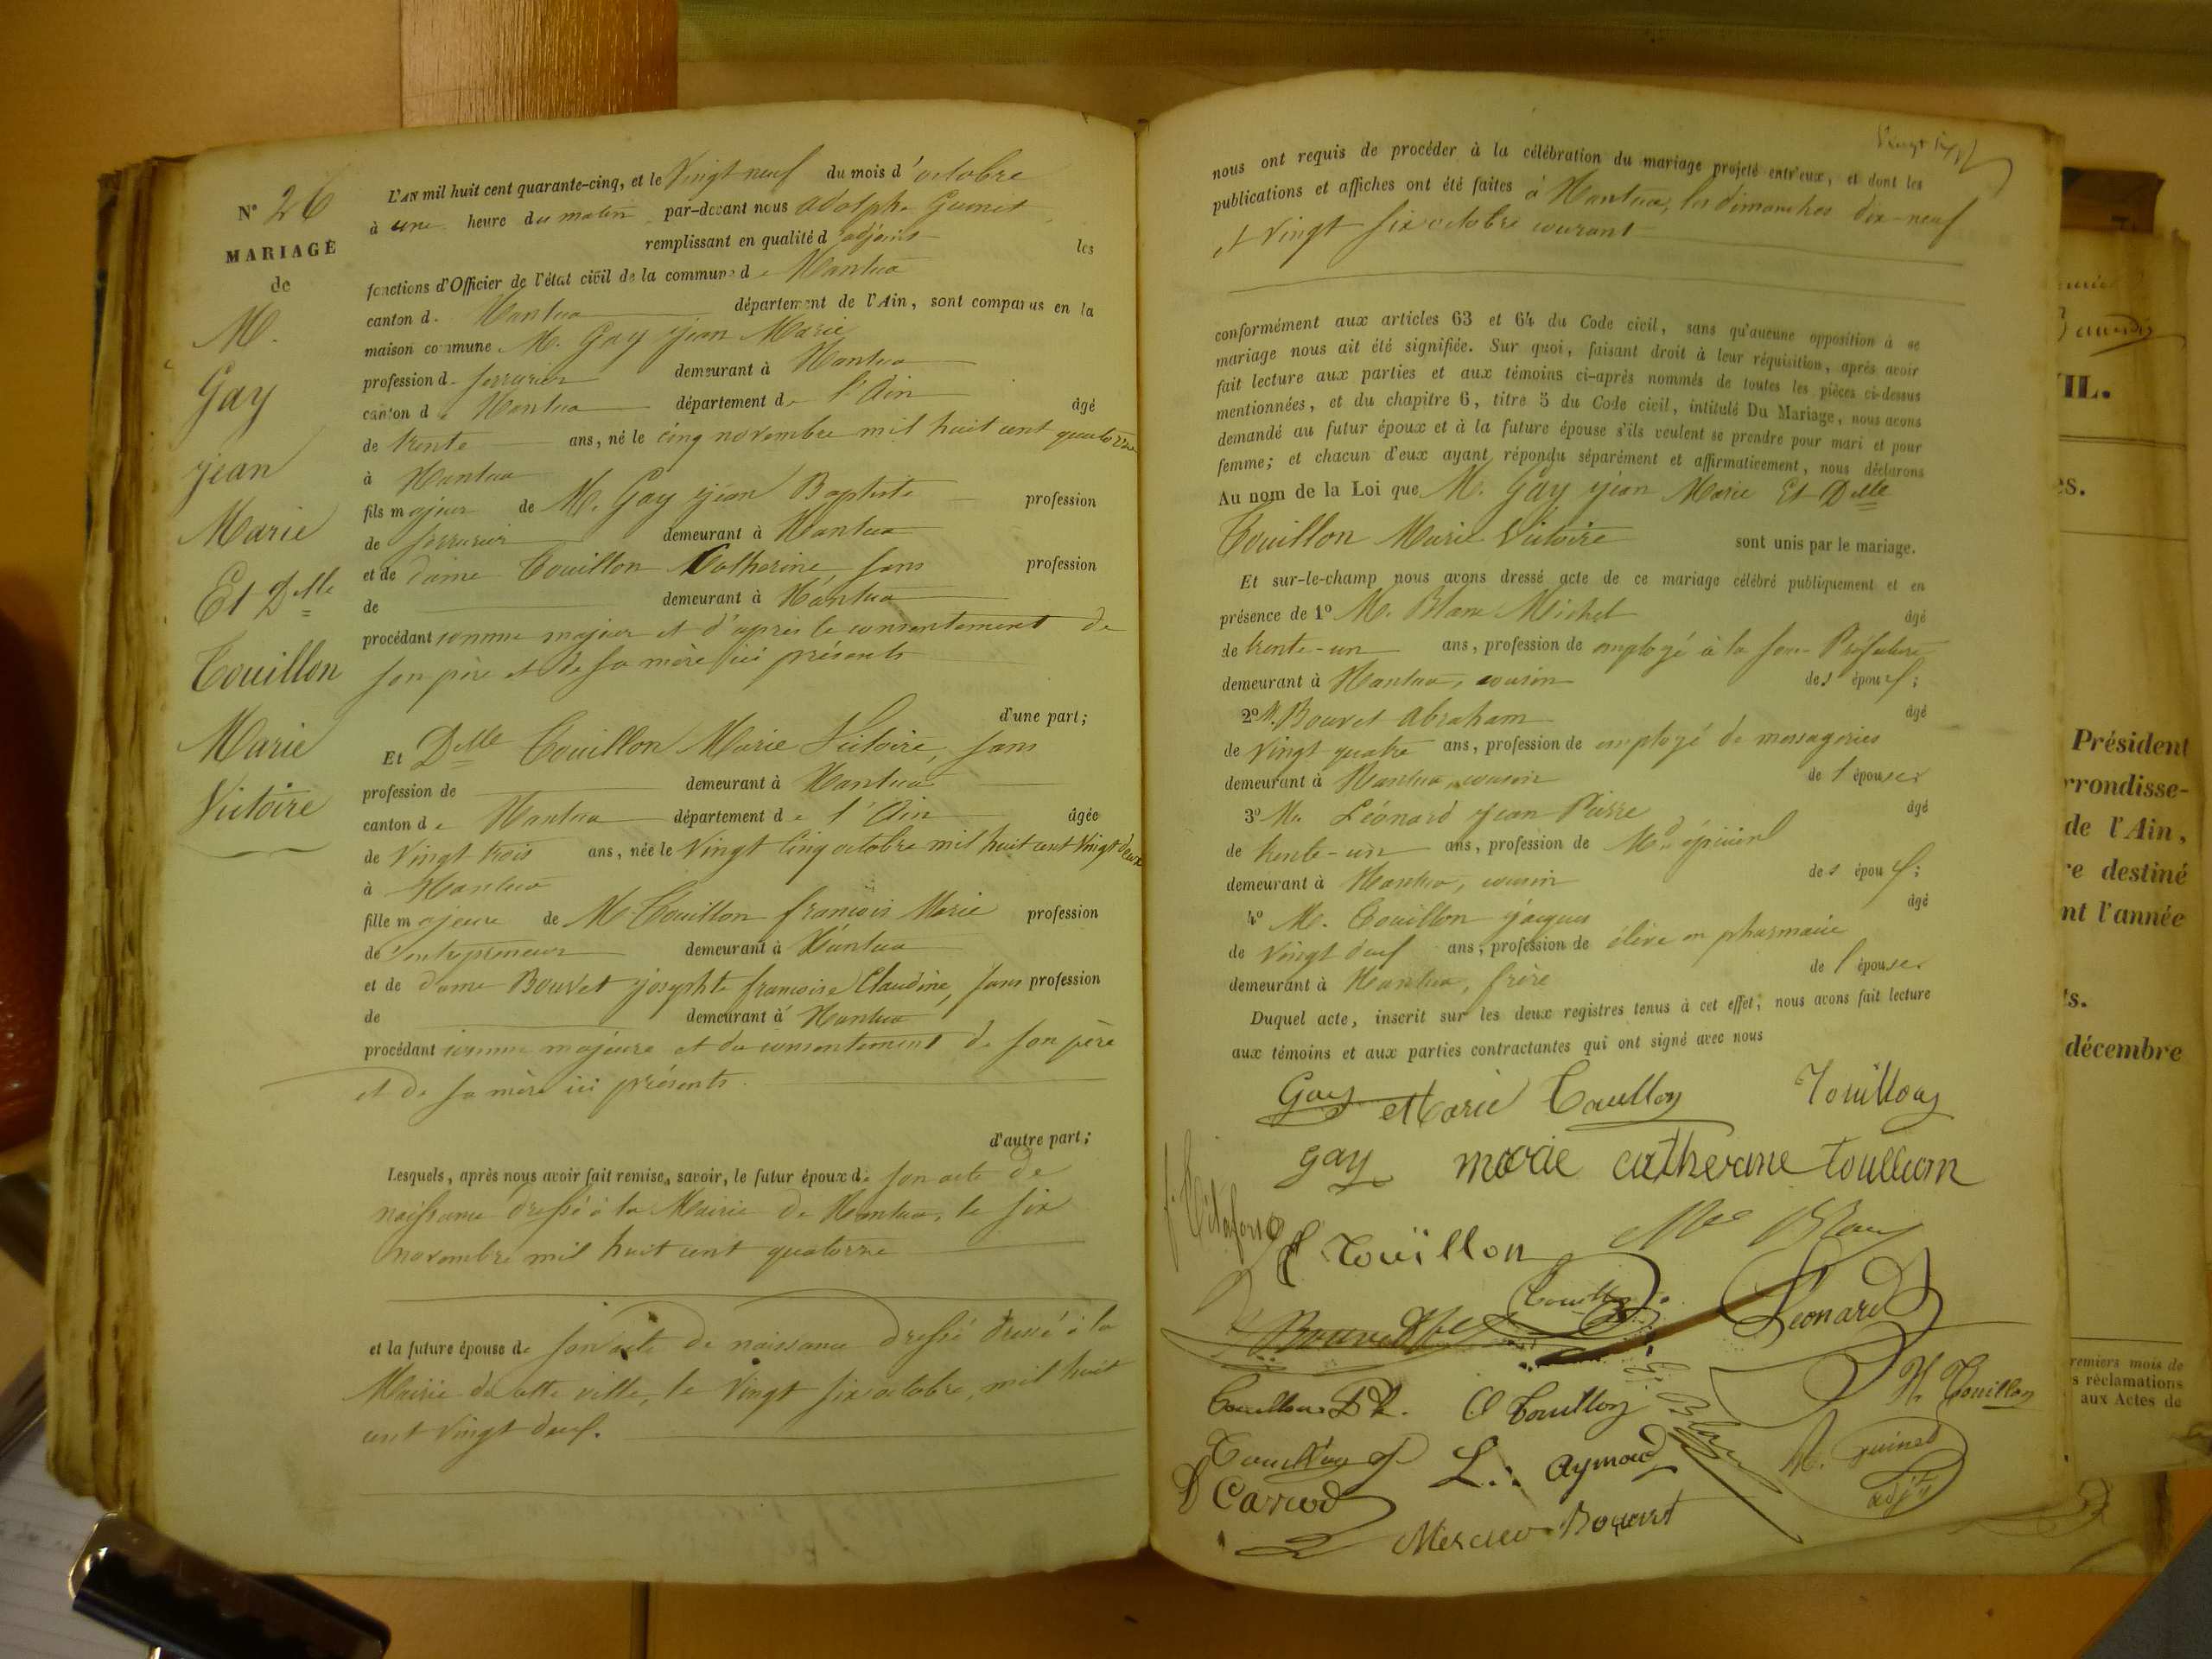 N° 26
MARIAGE
de
M.
Gay
jean
Marie
Et Delle
Touillon
Marie
Victoire
L'AN mil huit cent quarante-cinq, et le Vingt neuf du mois d'octobre
à une heure du matin, par-devant nous adolphe Guinet
remplissant en qualité d'adjoint les
fonctions d'Officier de l'état civil de la commune de Nantua
canton d. Nantua département de l'Ain, sont comparus en la
maison commune M. Gay jean Marie
profession d. serrurier demeurant à Nantua
canton de Nantua département de l'Ain âgé
de trente ans, né le cinq novembre mil huit cent quatorze
à Nantua
fils majeur de M. Gay jean Baptiste profession
de serrurier demeurant à Nantua
et de dame Touillon Catherine sans profession
de demeurant à Nantua
procédant comme majeur et d'après le consentement de
son père et de sa mère ici présents
d'une part;
Et Delle Touillon Marie Victoire, sans
profession de demeurant à Nantua
canton de Nantua département de l'Ain âgée
de Vingt trois ans, née le Vingt cinq octobre mil huit cent vingt deux
à Nantua
fille majeure de M. Touillon françois Marie profession
d'entrepreneur demeurant à Nantua
et de dame Bouvet josephte francoise Claudine, sans profession
de demeurant à Nantua
procédant comme majeure et du consentement de son père
et de sa mère ici présents.
d'autre part;
Lesquels, après nous avoir fait remise, savoir, le futur époux de son acte de
naissance dressé à la Mairie de Nantua, le six
novembre mil huit cent quatorze
et la future épouse de son acte de naissance dressé dressé à la
Mairie de cette ville, le Vingt six octobre, mil huit
cent vingt deux.
nous ont requis de procéder à la célébration du mariage projeté entr'eux, et dont les
publications et affiches ont été faites à Nantua, les dimanches dix-neuf
et Vingt six octobre courant
conformément aux articles 63 et 64 du Code civil, sans qu'aucune opposition à ce
mariage nous ait été signifiée. Sur quoi, faisant droit à leur réquisition, après avoir
fait lecture aux parties et aux témoins ci-après nommés de toutes les pièces ci-dessus
mentionnées, et du chapitre 6, titre 5 du Code civil, intitulé Du Mariage, nous avons
demandé au futur époux et à la future épouse s'ils veulent se prendre pour mari et pour
femme; et chacun d'eux ayant répondu séparément et affirmativement, nous déclarons
Au nom de la Loi que M. Gay jean Marie Et Delle
Touillon Marie Victoire sont unis par le mariage.
Et sur-le-champ nous avons dressé acte de ce mariage célébré publiquement et en
présence de 1° M. Blanc Michel âgé
de trente-un ans, profession de employé à la sous-Préfecture
demeurant à Nantua, cousin des époux;
2° M. Bouvet Abraham âgé
de Vingt quatre ans, profession de employé de messageries
demeurant à Nantua, cousin de l'épouse.
3° M. Léonard jean Pierre âgé
de trente-un ans, profession de Md épicier
demeurant à Nantua, cousin des époux;
4° M. Touillon jacques âgé
de Vingt deux ans, profession de élève en pharmacie
demeurant à Nantua, frère de l'épouse.
Duquel acte, inscrit sur les deux registres tenus à cet effet, nous avons fait lecture
aux témoins et aux parties contractantes qui ont signé avec nous
Gay Marie Touillon Touillon
gay marie catherine touillom
Touillon Blanc
Touillon
Bouvet Léonard
Touillon C Touillon H. Touillon
Touillon L. Aymard A. guinet
Carrod adjt
Mercier Bouvet
VIL.
es.
Président
rrondisse-
de l'Ain,
re destiné
nt l'année
ts.
décembre
remiers mois de
s réclamations
aux Actes de